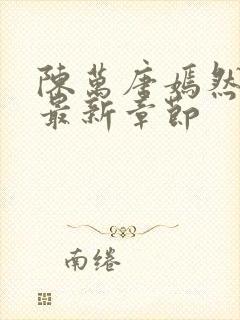 陳萬唐嫣然
最新章節
南绻